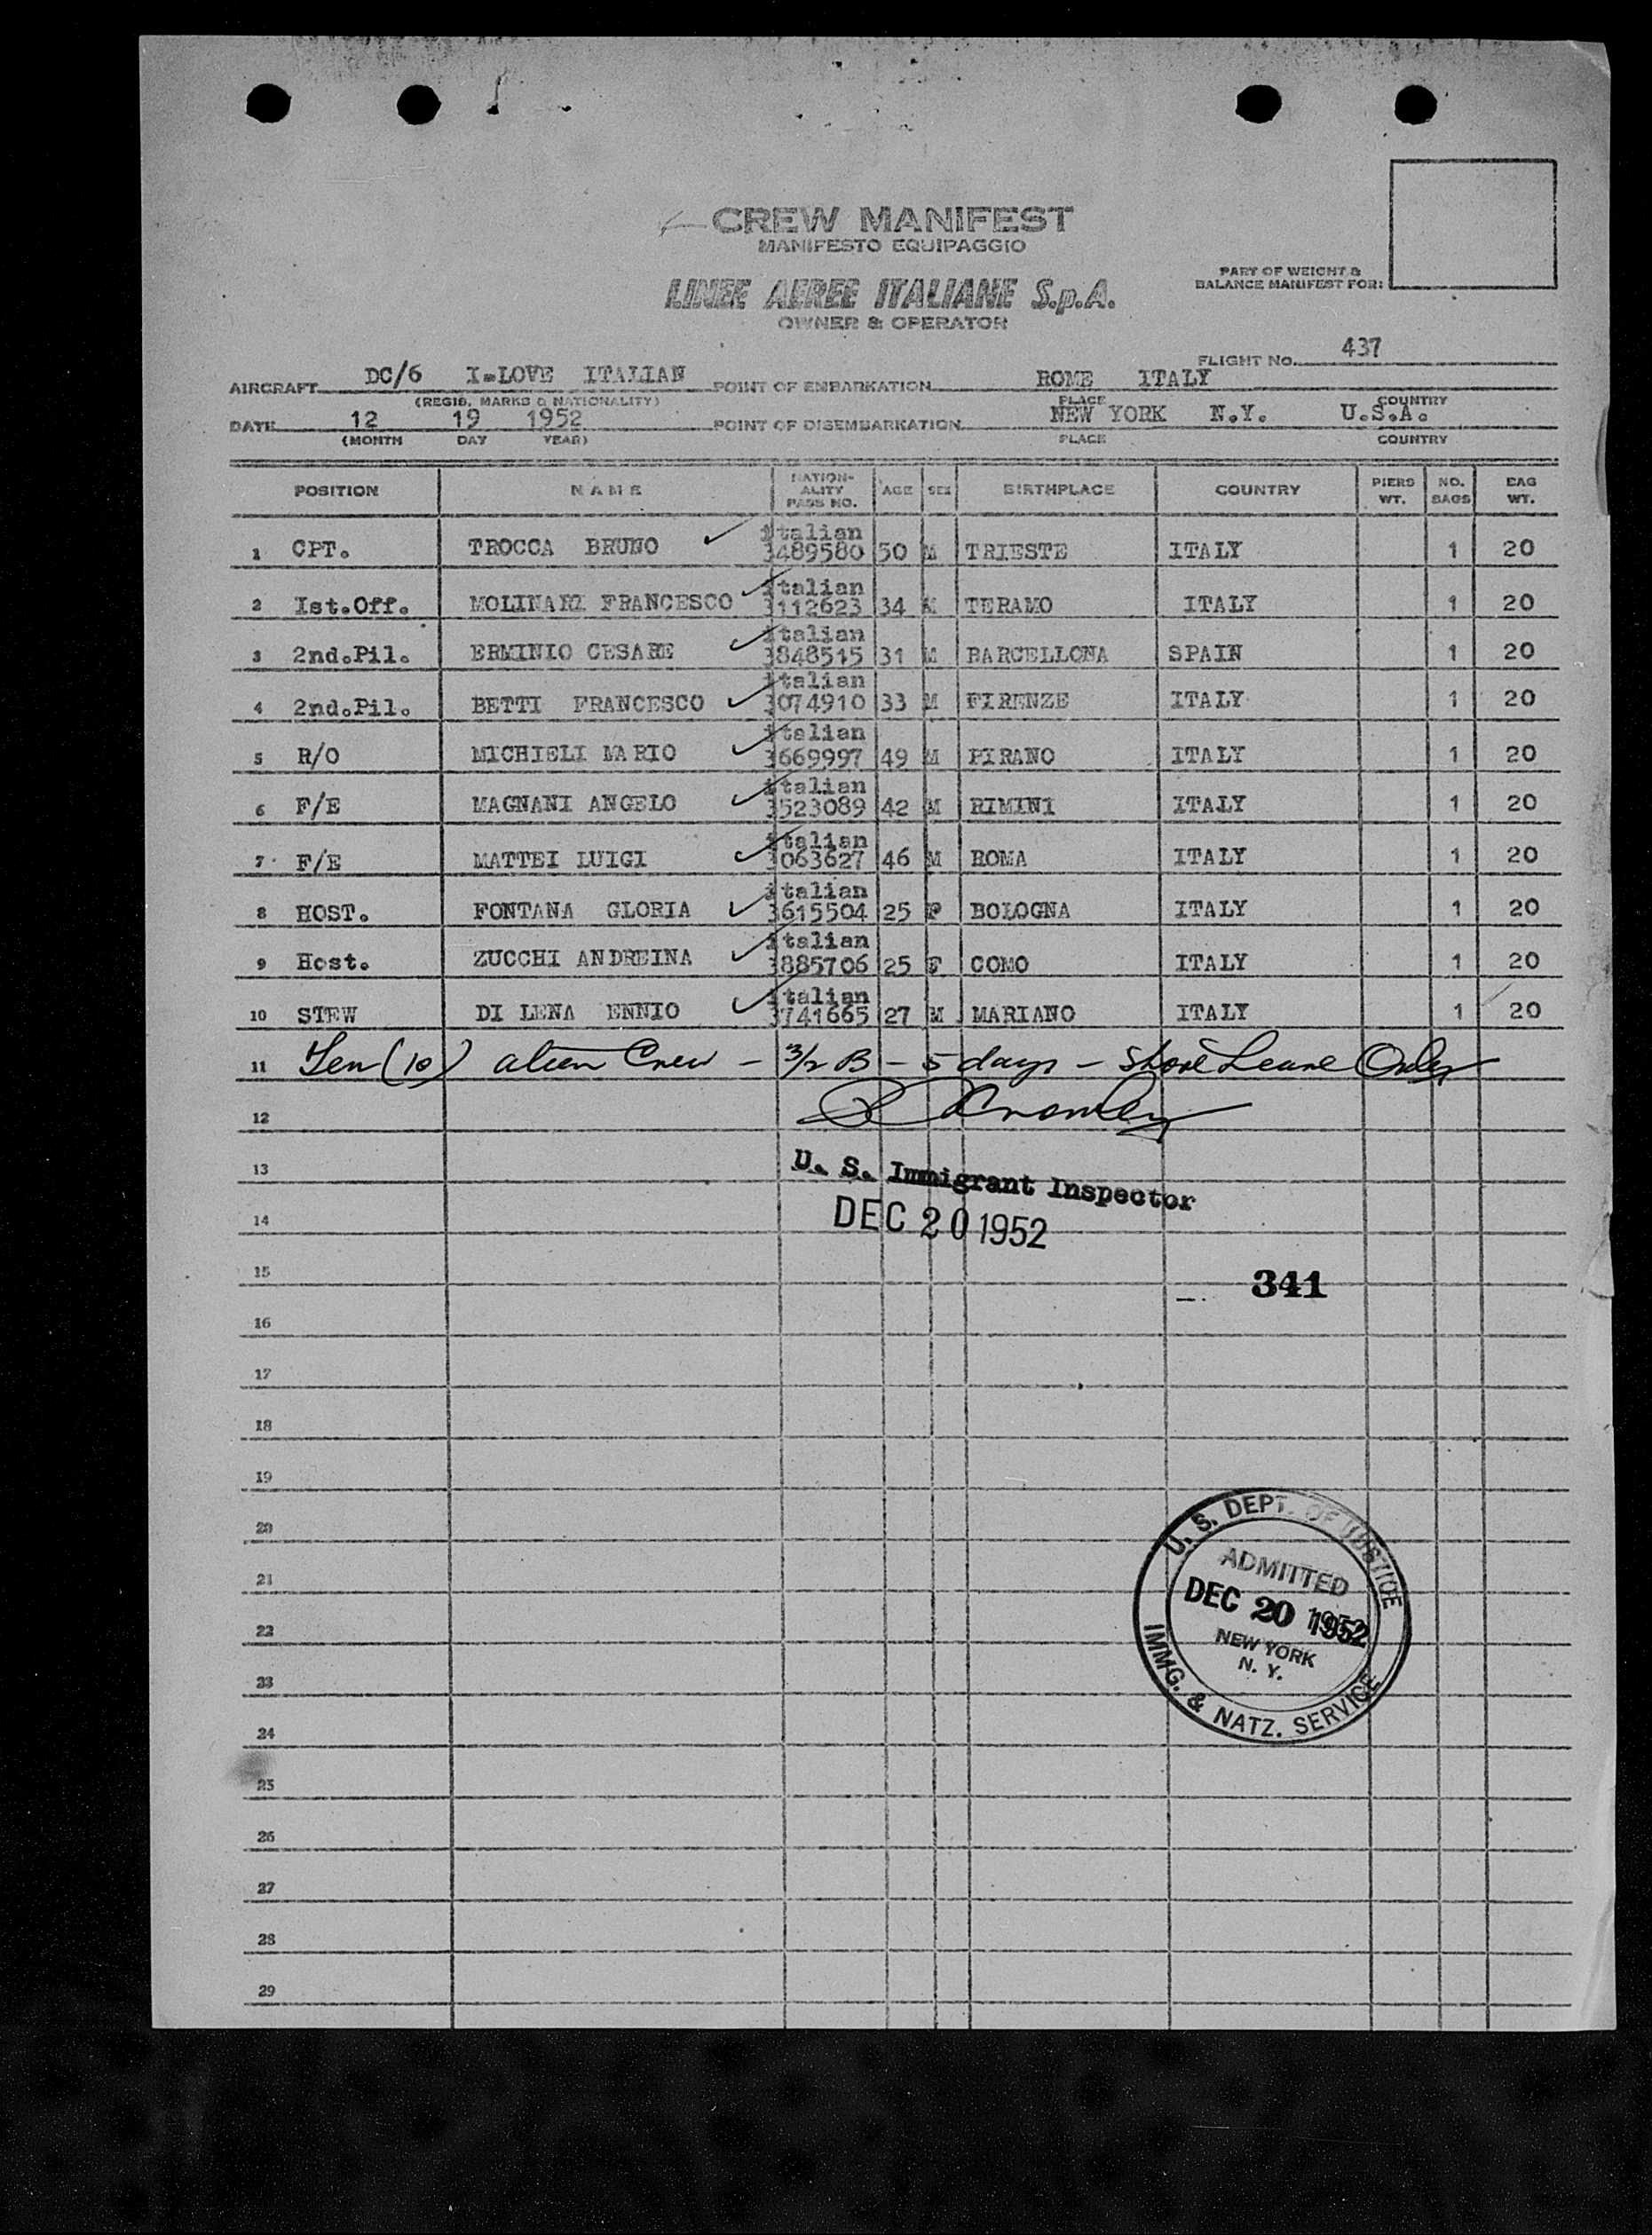 CREW MANIFEST
MANIFESTO EQUIPAGGIO
LINEE AEREE ITALIANE S.p.A.
OWNER & OPERATOR
PART OF WEIGHT &
BALANCE MANIFEST FOR:
FLIGHT No. 437
AIRCRAFT DC/6 I-LOVE ITALIAN POINT OF EMBARKATION ROME ITALY
(REGIS. MARKS & NATIONALITY) PLACE COUNTRY
DATE 12 19 1952 POINT OF DISEMBARKATION NEW YORK N.Y. U.S.A.
(MONTH DAY YEAR) PLACE COUNTRY
POSITION NAME NATION-ALITY PASS NO. AGE SEX BIRTHPLACE COUNTRY PIERS WT. NO. BAGS BAG WT.
1 CPT. TROCCA BRUNO italian 3489580 50 M TRIESTE ITALY 1 20
2 Ist.Off. MOLINARI FRANCESCO italian 3112623 34 M TERAMO ITALY 1 20
3 2nd.Pil. ERMINIO CESARE italian 3848515 31 M BARCELLONA SPAIN 1 20
4 2nd.Pil. BETTI FRANCESCO italian 3074910 33 M FIRENZE ITALY 1 20
5 R/O MICHIELI MARIO italian 3669997 49 M PIRANO ITALY 1 20
6 F/E MAGNANI ANGELO italian 3523089 42 M RIMINI ITALY 1 20
7 F/E MATTEI LUIGI italian 3063627 46 M ROMA ITALY 1 20
8 HOST. FONTANA GLORIA italian 3615504 25 F BOLOGNA ITALY 1 20
9 Host. ZUCCHI ANDREINA italian 3885706 25 F COMO ITALY 1 20
10 STEW DI LENA ENNIO italian 3741665 27 M MARIANO ITALY 1 20
11 Ten (10) alien Crew - 3/2 B - 5 days - Shore Leave Only
12
13 U. S. Immigrant Inspector
14 DEC 20 1952
15 341
16
17
18
19
20
U. S. DEPT. OF JUSTICE
21 ADMITTED
DEC 20 1952
22 NEW YORK
N. Y.
23
IMMG. & NATZ. SERVICE
24
25
26
27
28
29